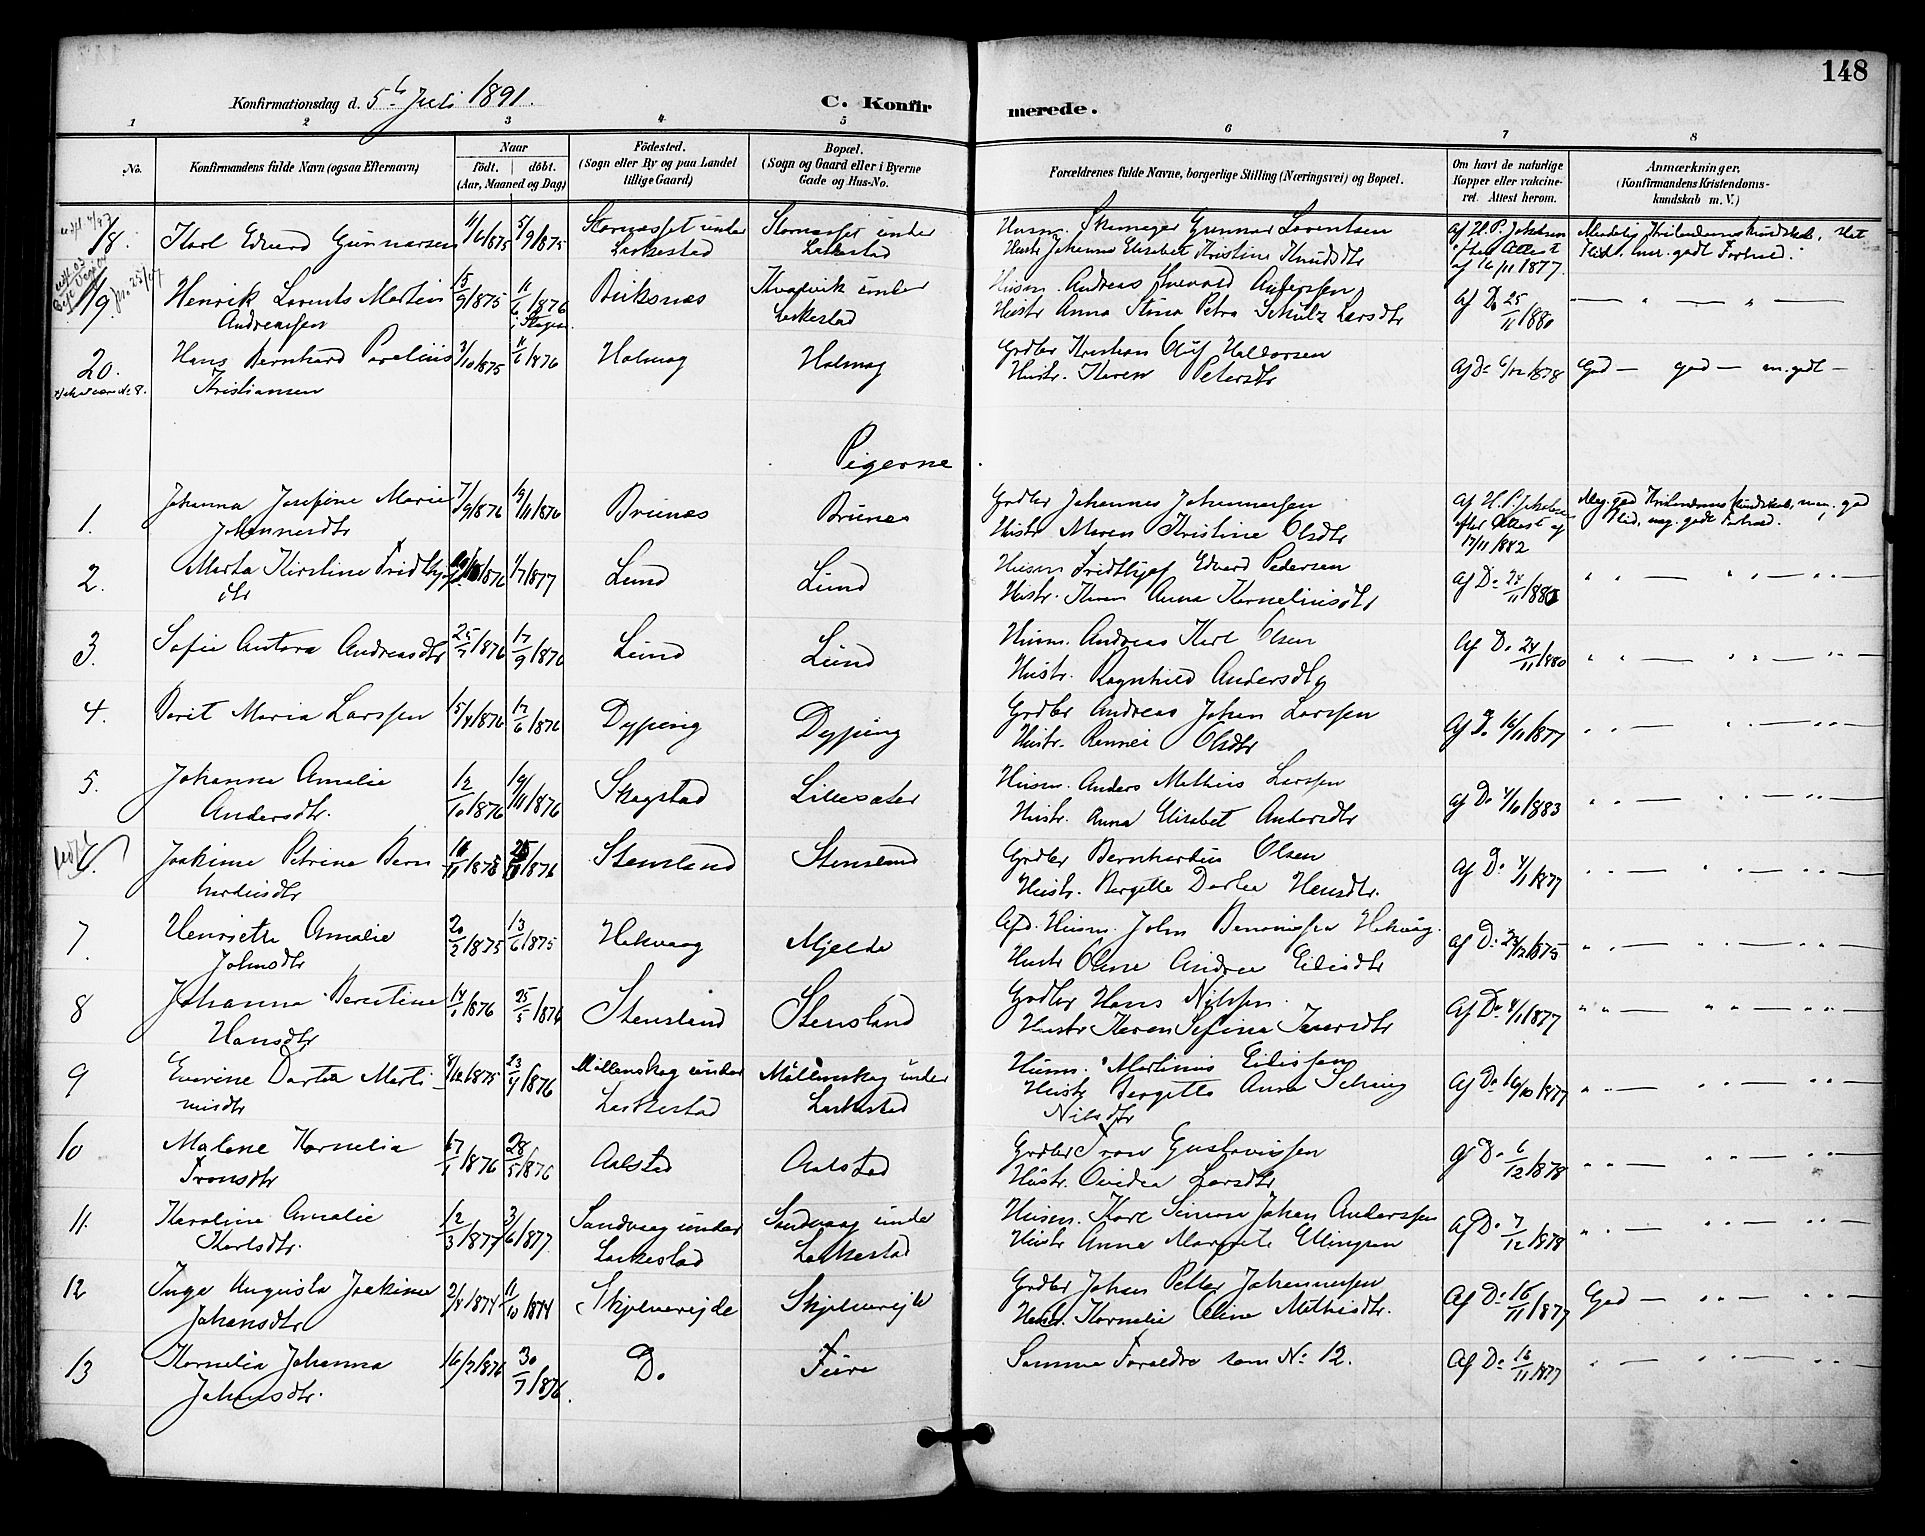 148
Konfirmationsdag d. 5 Juli 1891.
C. Konfirmerede.
1 2 3 4 5 6 7 8
No.
Konfirmandens fulde Navn (ogsaa Efternavn)
Naar
födt. döbt.
(Aar, Maaned og Dag)
Födested.
(Sogn eller By og paa Landet
tillige Gaard)
Bopæl.
(Sogn og Gaard eller i Byerne
Gade og Hus-No.
Forældrenes fulde Navne, borgerlige Stilling (Næringsvei) og Bopæl.
Om havt de naturlige
Kopper eller vakcine-
ret. Attest herom.
Anmærkninger,
(Konfirmandens Kristendoms-
kundskab m. V.)
18. Karl Edvard Gunnarsen 11/6/1875 5/9/1875 under Leikestad under Leikestad
Husm. Gunnar Lorentsen
Hustr Johanna Elisabet Kristine Knudsdtr
Af H. P. Jakobsen
efter Attest
af 16/11 1877.
19 Henrik Lorents Martin
Andreassen
15/9/1875 11/6/1876 Biksnæs Kvapvik under
Leikestad
Husm. Andreas Andersen
Hustr Anna Stina Petra Schulz Larsdtr
Af Do 25/11/1880
20. Hans Bernhard Parelius
Kristiansen
3/10/1875 11/6/1876 Holmog Holmog
Grdbr Kristian Oluf Haldorsen
Hustr. Karen Petersdtr
Af Do 6/12/1878 God — god — m. godt —
Pigerne
1. Johanna Josefine Marie
Johannesdtr
7/9/1876 19/11/1876 Brunæs Brunæs
Grdbr Johannes Johannessen
Hustr Maren Kristine Olsdtr
Af H. P. Jakobsen
efter Attest af
17/11/1882
Meg. god Kristendomskundskab, meg. god
Flid, meg. godt Forhold.
2. Marta Kirstine Fridthjofs
dtr
1876 1/7/1877 Lund Lund
Husm Fridthjof Edvard Pedersen
Hustr. Karen Anna Korneliusdtr
Af Do
3. Sofie Antora Andreasdtr 25/7/1876 17/9/1876 Lund Lund
Husm. Andreas Karl Olsen
Hustr. Ragnhild Andersdtr
Af Do 24/11/1880
4. Berit Maria Larssen 15/4/1876 17/6/1876 Dypping Dypping
Grdbr Andreas Johan Larssen
Hustr. Rannei Olsdtr
Af Do 16/11/1877
5. Johanna Amalie
Andersdtr.
12/10/1876 19/11/1876 Skogstad Lillesæter
Husm. Anders Mathias Larssen
Hustr. Anna Elisabet Andersdtr
Af Do 4/10/1883
6. Joakime Petrine Bern
hardusdtr
Stensland Stensland
Grdbr Bernhardus Olsen
Hustr. Bergitte Dortea Hansdtr.
Af Do 4/1/1877
7. Henriette Amalie
Johnsdtr
20/2/1875 13/6/1875 Hakvaag Mjelde
Afd. Husm. John Benonissen Hakvåg.
Hustr Oline Andrea Eilisdtr
Af Do 1875
8 Johanna Berntine
Hansdtr
14/1/1876 25/5/1876 Stensland Stensland
Grdbr Hans Nilssen.
Hustr Karen Sefina Iversdtr
Af Do 4/1/1877
9 Everine Dortea Marti-
nusdtr
8/12/1875 23/4/1876 Möllenskog under
Leikestad
Möllenskog under
Leikestad
Husm. Martinus Eilissen
Hustr Bergitte Anna
Nilsdtr
Af Do 16/10/1877
10 Malene Kornelia
Tronsdtr
17/1/1876 28/5/1876 Aalstad Aalstad
Grdbr Tron Gustavussen
Hustr. Ovidia Larsdtr
Af Do 6/12/1878
11. Karoline Amalie
Karlsdtr.
12/3/1877 3/6/1877. Sandvaag under
Leikestad
Sandvaag under
Leikestad
Husm. Karl Simon Johan Anderssen
Hustr Anna Margrete Ellingsen
Af Do 7/12/1878
12 Inga Augusta Joakime
Johansdtr
2/8/1874 11/10/1874 Skjelvereide Skjelvereide
Grdbr Johan Petter Johannessen
Hustr. Kornelie Oline Mathisdtr.
Af Do 16/11/1877 God —
13 Kornelia Johanna
Johansdtr.
16/2/1876 30/7/1876. Do
Samme Forældre som No 12.
Af Do 16/11/1877